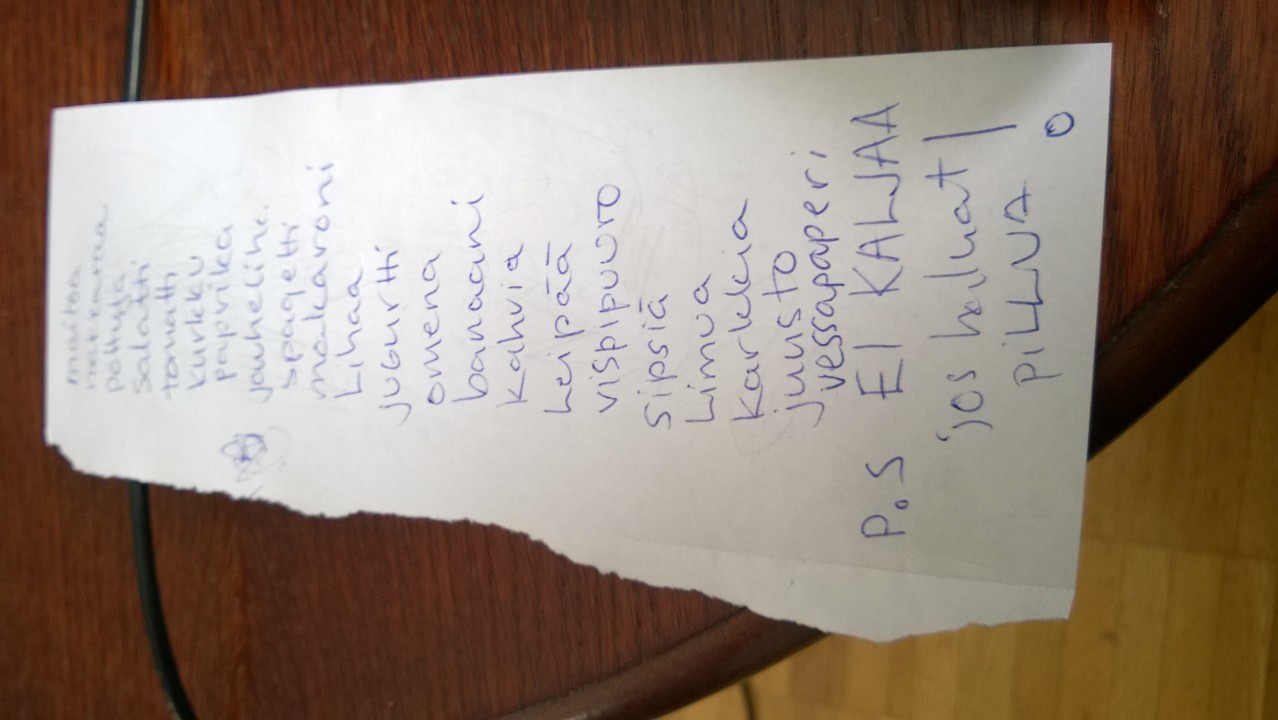 maitoa
makkaraa
pottuja
Salatti
tomatti
kurkku
papvrika
jauhelihe.
spagetti
makaaroni
Lihaa
juGurtti
omena
banaani
kahvia
Leipää
vispipuuro
Sipsiä
Limua
karkkia
juusto
vessapaperi
P.S EI KALJAA
jos haluat
PiLLUA!